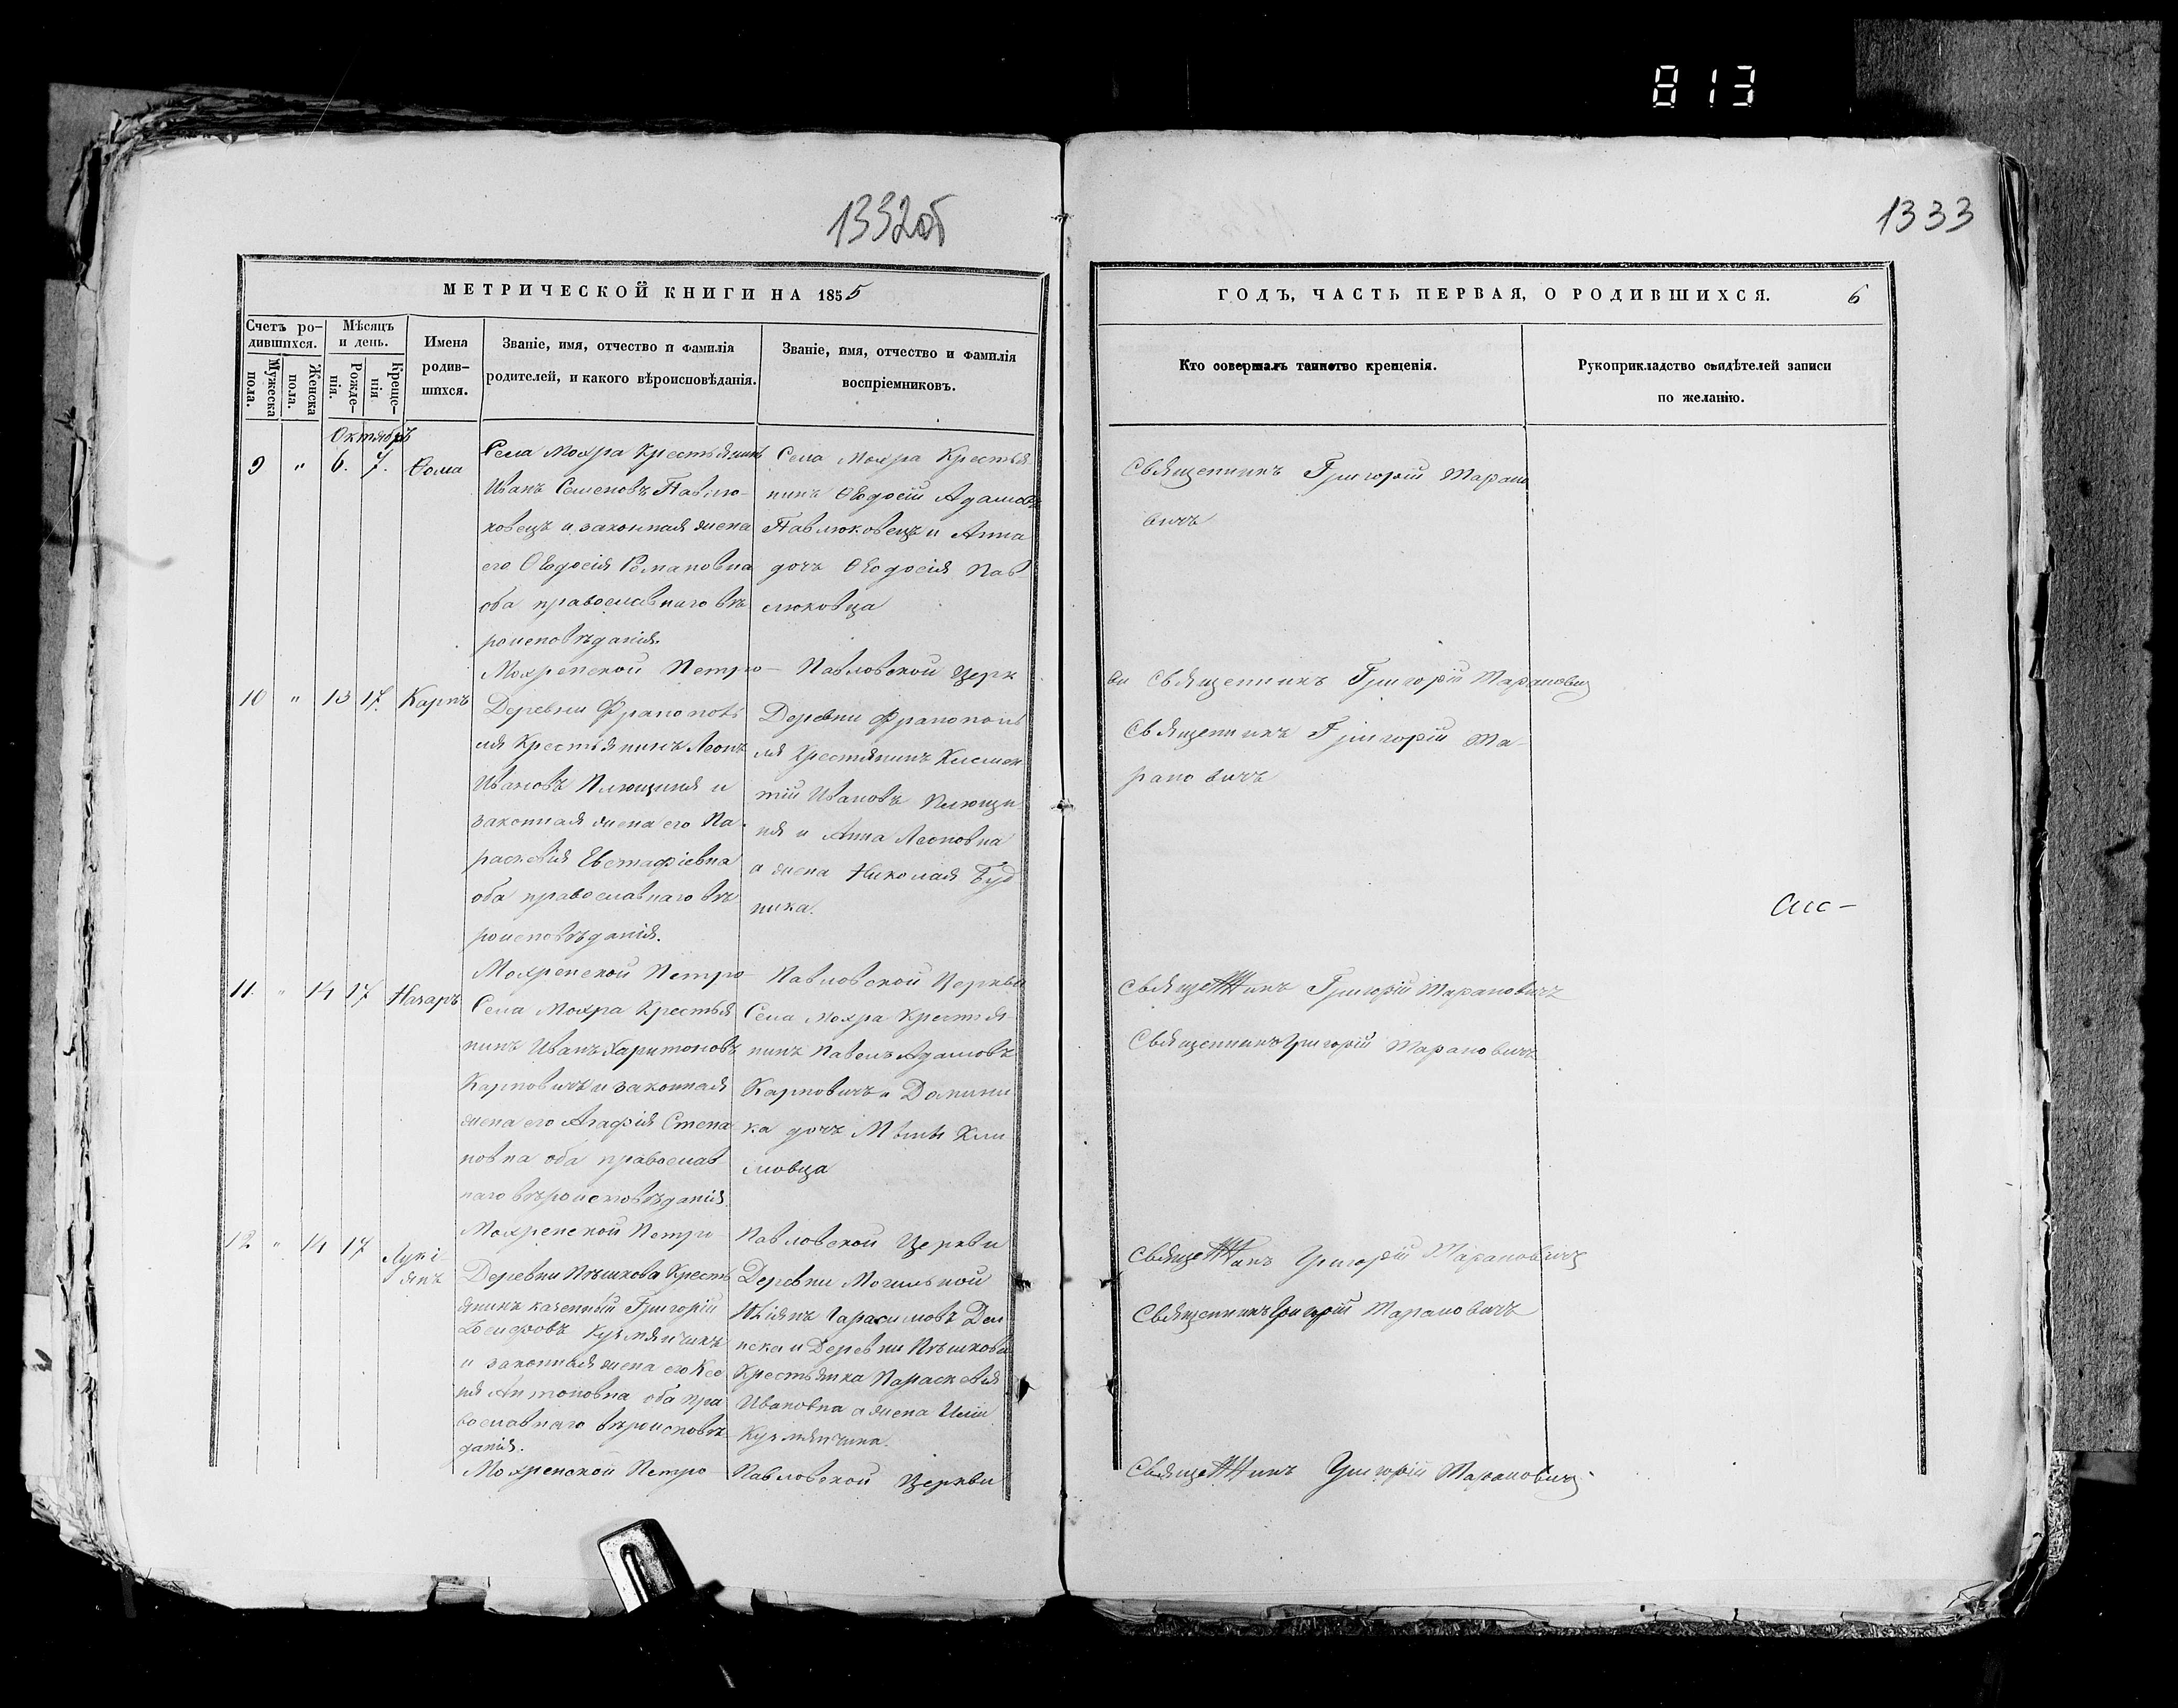 813
1332об
1333
МЕТРИЧЕСКОЙ КНИГИ НА 1855
ГОДЪ, ЧАСТЬ ПЕРВАЯ, О РОДИВШИХСЯ.
6
Счетъ ро-
дившихся.
Мужеска
пола.
Женска
пола.
Мѣсяцъ
и день.
Рожде-
нія.
Креще-
нія
Имена
родив-
шихся.
Званіе, имя, отчество и фамилія
родителей, и какого вѣроисповѣданія.
Званіе, имя, отчество и фамилія
воспріемниковъ.
Кто совершалъ таинство крещенія.
Рукоприкладство свидѣтелей записи
по желанію.
Октябрь
9 " 6. 7. Ѳома
Села Мохра Крестьянинъ
Иванъ Семеновъ Павлю-
ковецъ и законная жена
его Ѳеодосія Романовна
оба православнаго вѣ
роисповѣданія.
Села Мохра Крестья
нинъ Ѳеодосій Адамовъ
Павлюковецъ и Анна
дочь Ѳеодосія Пав
люковца
Священникъ Григорій Марано
вичъ
Мохренской Петро- Павловской Церк
ви Священникъ Григорій Марановичъ
10 " 13 17. Карпъ
Деревни Франопо
ля Крестьянинъ Леонъ
Ивановъ Плющиня и
законная жена его Па-
раскевія Евстафіевна
оба православнаго вѣ
роисповѣданія.
Деревни Франополь
ля Крестянинъ Климен
тій Ивановъ Плющи
ня и Анна Леоновна
а жена Николая Буд
ника.
Священникъ Григорій Ма-
рановичъ
Мохренской Петро- Павловской Церкви
Священникъ Григорій Марановичъ
11. " 14 17 Назаръ
Села Мохра Крестья
нинъ Иванъ Харитоновъ
Карповичъ и законная
жена его Агафія Степа
новна оба православ
наго вѣроисповѣданія
Села Мохра Крестья
нинъ Павелъ Адамовъ
Карповичъ и Домини
ка дочь Кли
мовца
Священникъ Григорій Марановичъ
Мохренской Петро Павловской Церкви
Священникъ Григорій Марановичъ
12 " 14 17 Лукі-
янъ
Деревни Пѣшкова Кресть
янинъ казенный Григорій
Іосифовъ Кузмянчикъ
и законная жена его Ксе
нія Антоновна оба пра
вославнаго вѣроисповѣ
данія.
Деревни Могильной
Гарасимовъ
и Деревни Пѣшкова
Крестьянка Параскевія
Ивановна а жена Иліи
Кузмянчика.
Священникъ Григорій Марановичъ
Мохренской Петро Павловской Церкви
Священникъ Григорій Марановичъ